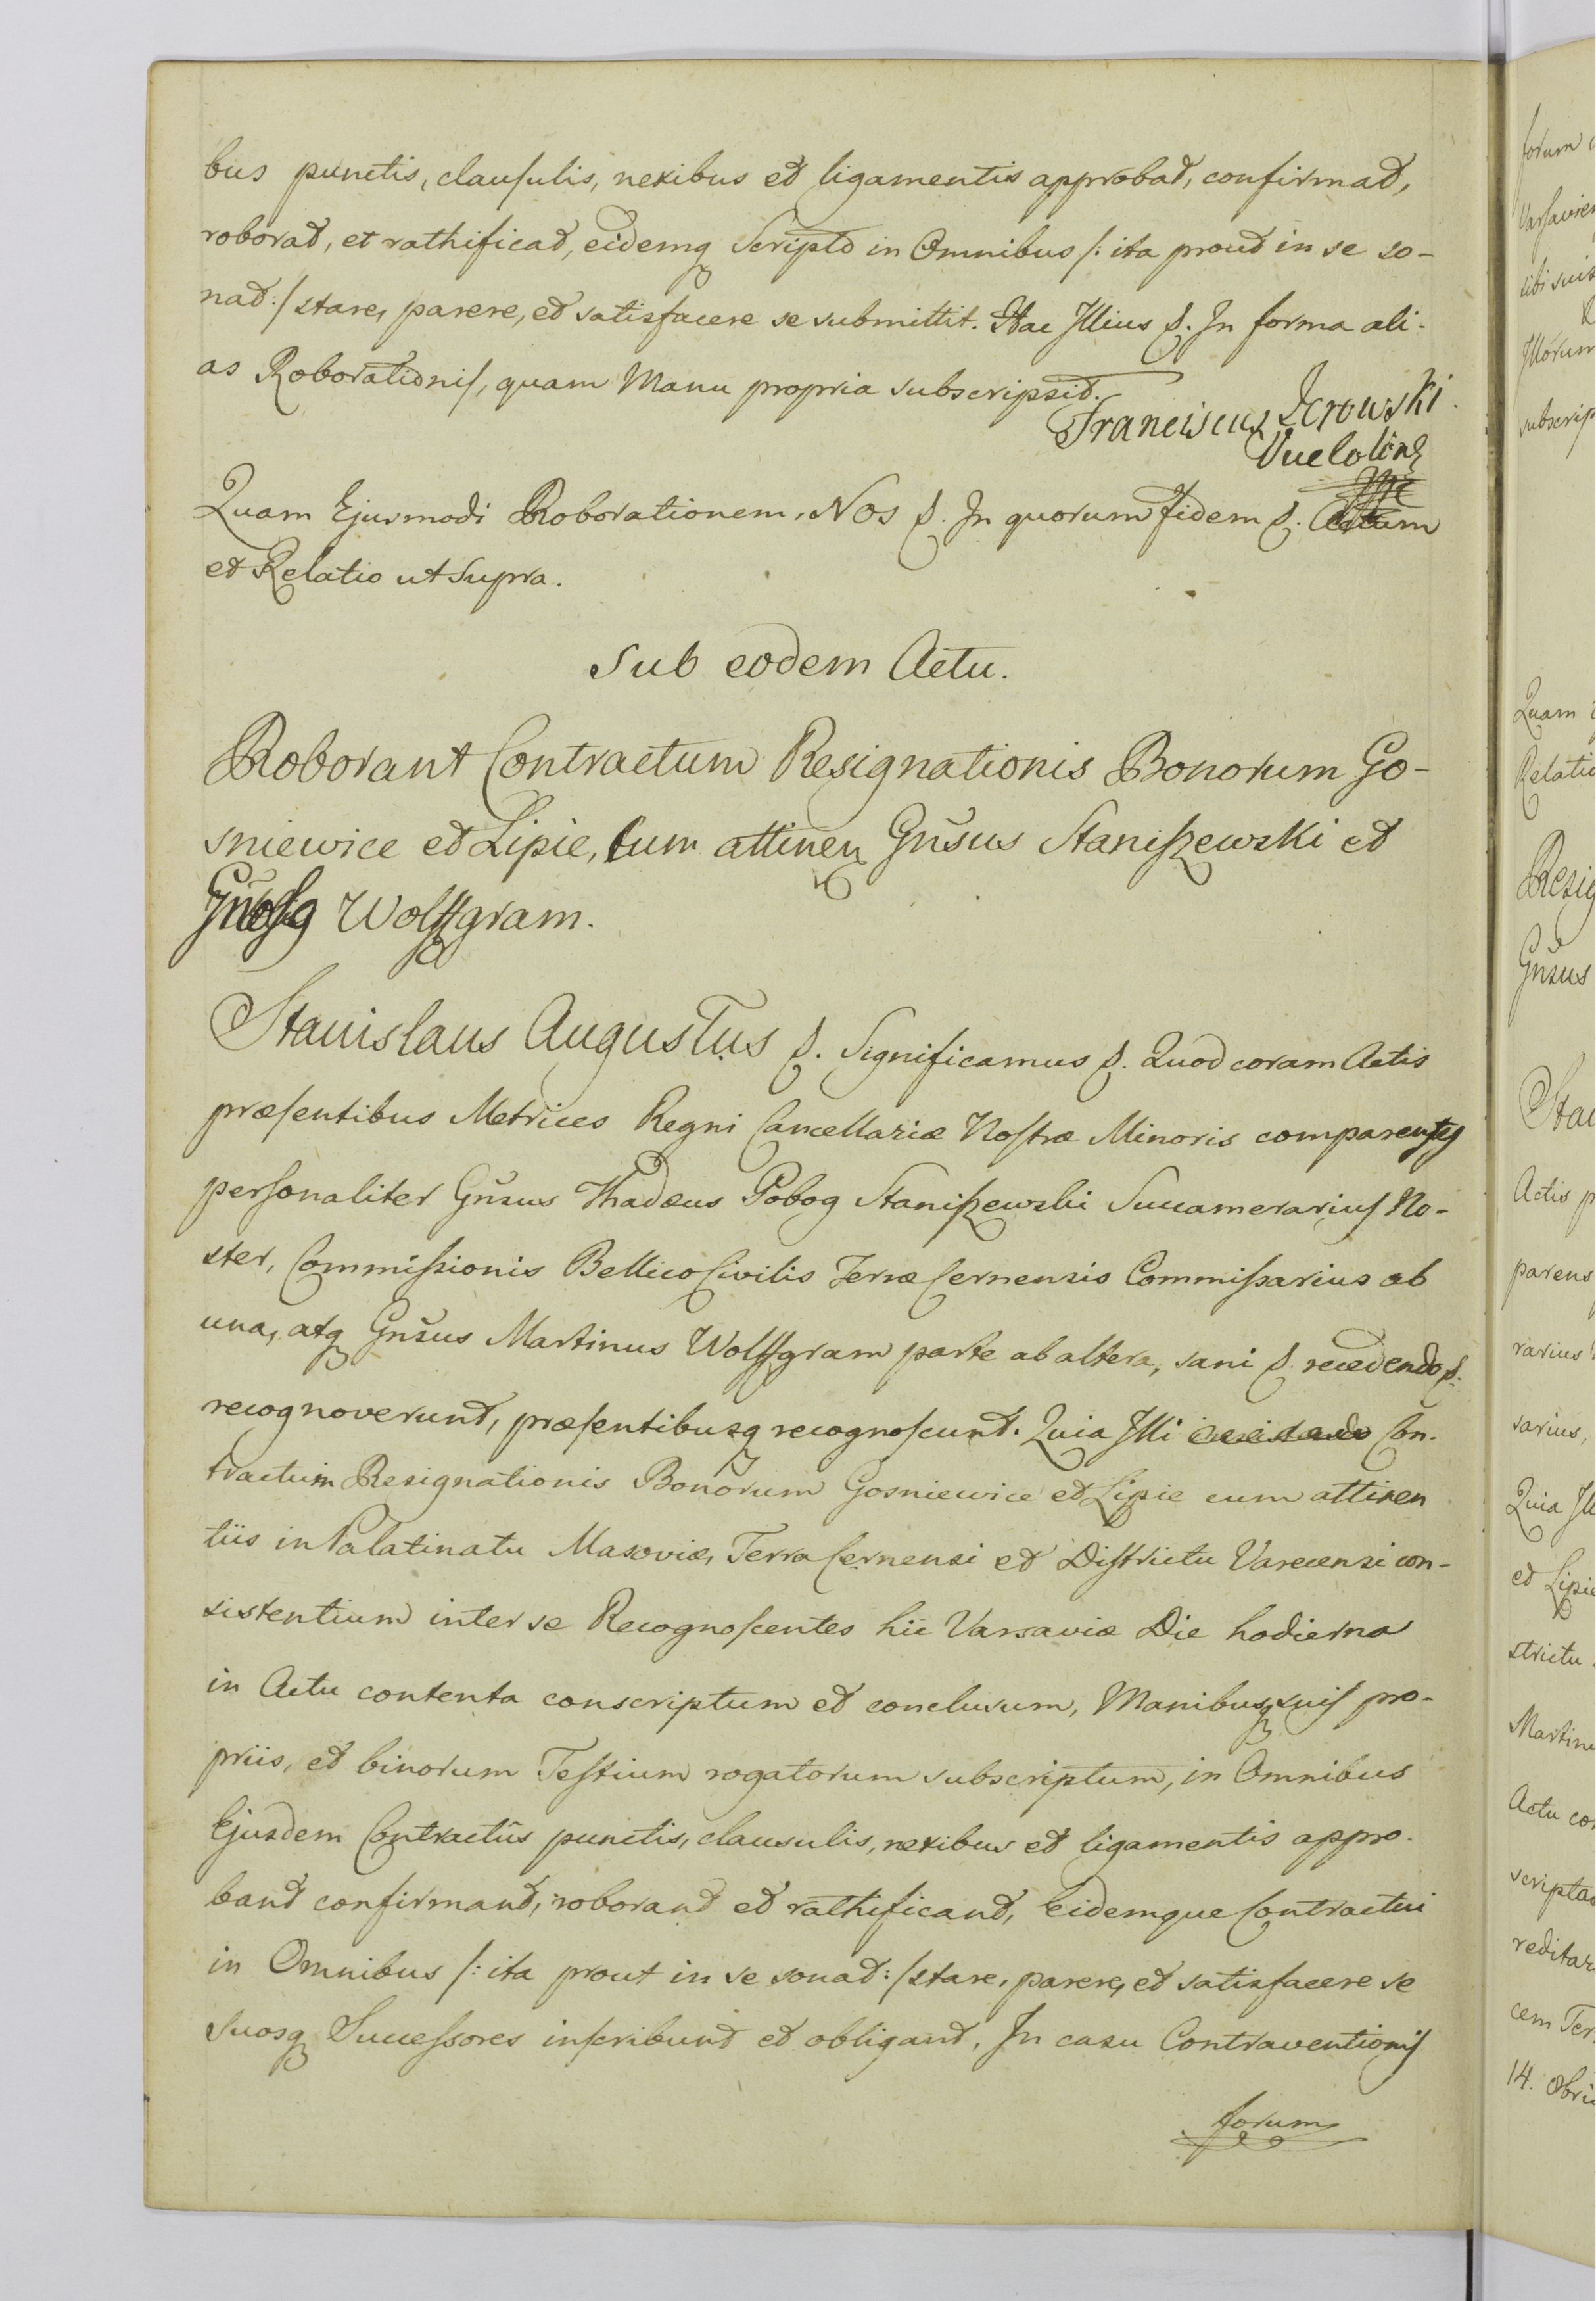 bus punctis, clausulis, nexibus et ligamentis approbat, confirmat,
roborat, et rathificat, eidemq Scripto in Omnibus /: ita prout in se so-
nat :/ stare, parere, et satisfacere se submittit. Hac Illius p. In forma ali-
as Roborationis, quam Manu propria subscripsit.
Franciscus
Quam Ejusmodi Roborationem, Nos p. In quorum Fidem p. Actum
et Relatio ut supra.
Sub eodem Actu.
Roborant Contractum Resignationis Bonorum Go-
sniewice et Lipie, Cum attinen Gnsus Staniszewski et
Wolffgram.
Stanislaus Augustus p. Significamus p. Quod coram Actis
præsentibus Metrices Regni Cancellariæ Nostræ Minoris comparentes
personaliter Gnsus Thadæus Pobog Staniszewski Succamerarius No-
ster, Commissionis Bellico Civilis Terræ Cernensis Commissarius ab
una, atq Gnsus Martinus Wolffgram parte ab altera, sani p. recedendo p.
recognoverunt, præsentibusq recognoscunt. Quia Illi Con-
tractum Resignationis Bonorum Gosniewice et Lipie cum attinen
tiis in Palatinatu Masoviæ, Terra Cernensi et Districtu Varecensi con-
sistentium inter se Recognoscentes hic Varsaviæ Die hodierna
in Actu contenta conscriptum et conclusum, Manibusq suis pro-
priis, et binorum Testium rogatorum subscriptum, in Omnibus
Ejusdem Contractûs punctis, clausulis, nexibus et ligamentis appro-
bant confirmant, roborant et rathificant, Eidemque Contractui
in Omnibus /: ita prout in se sonat :/ stare, parere, et satisfacere se
suosq Successores inscribunt et obligant. In casu Contraventionis
forum